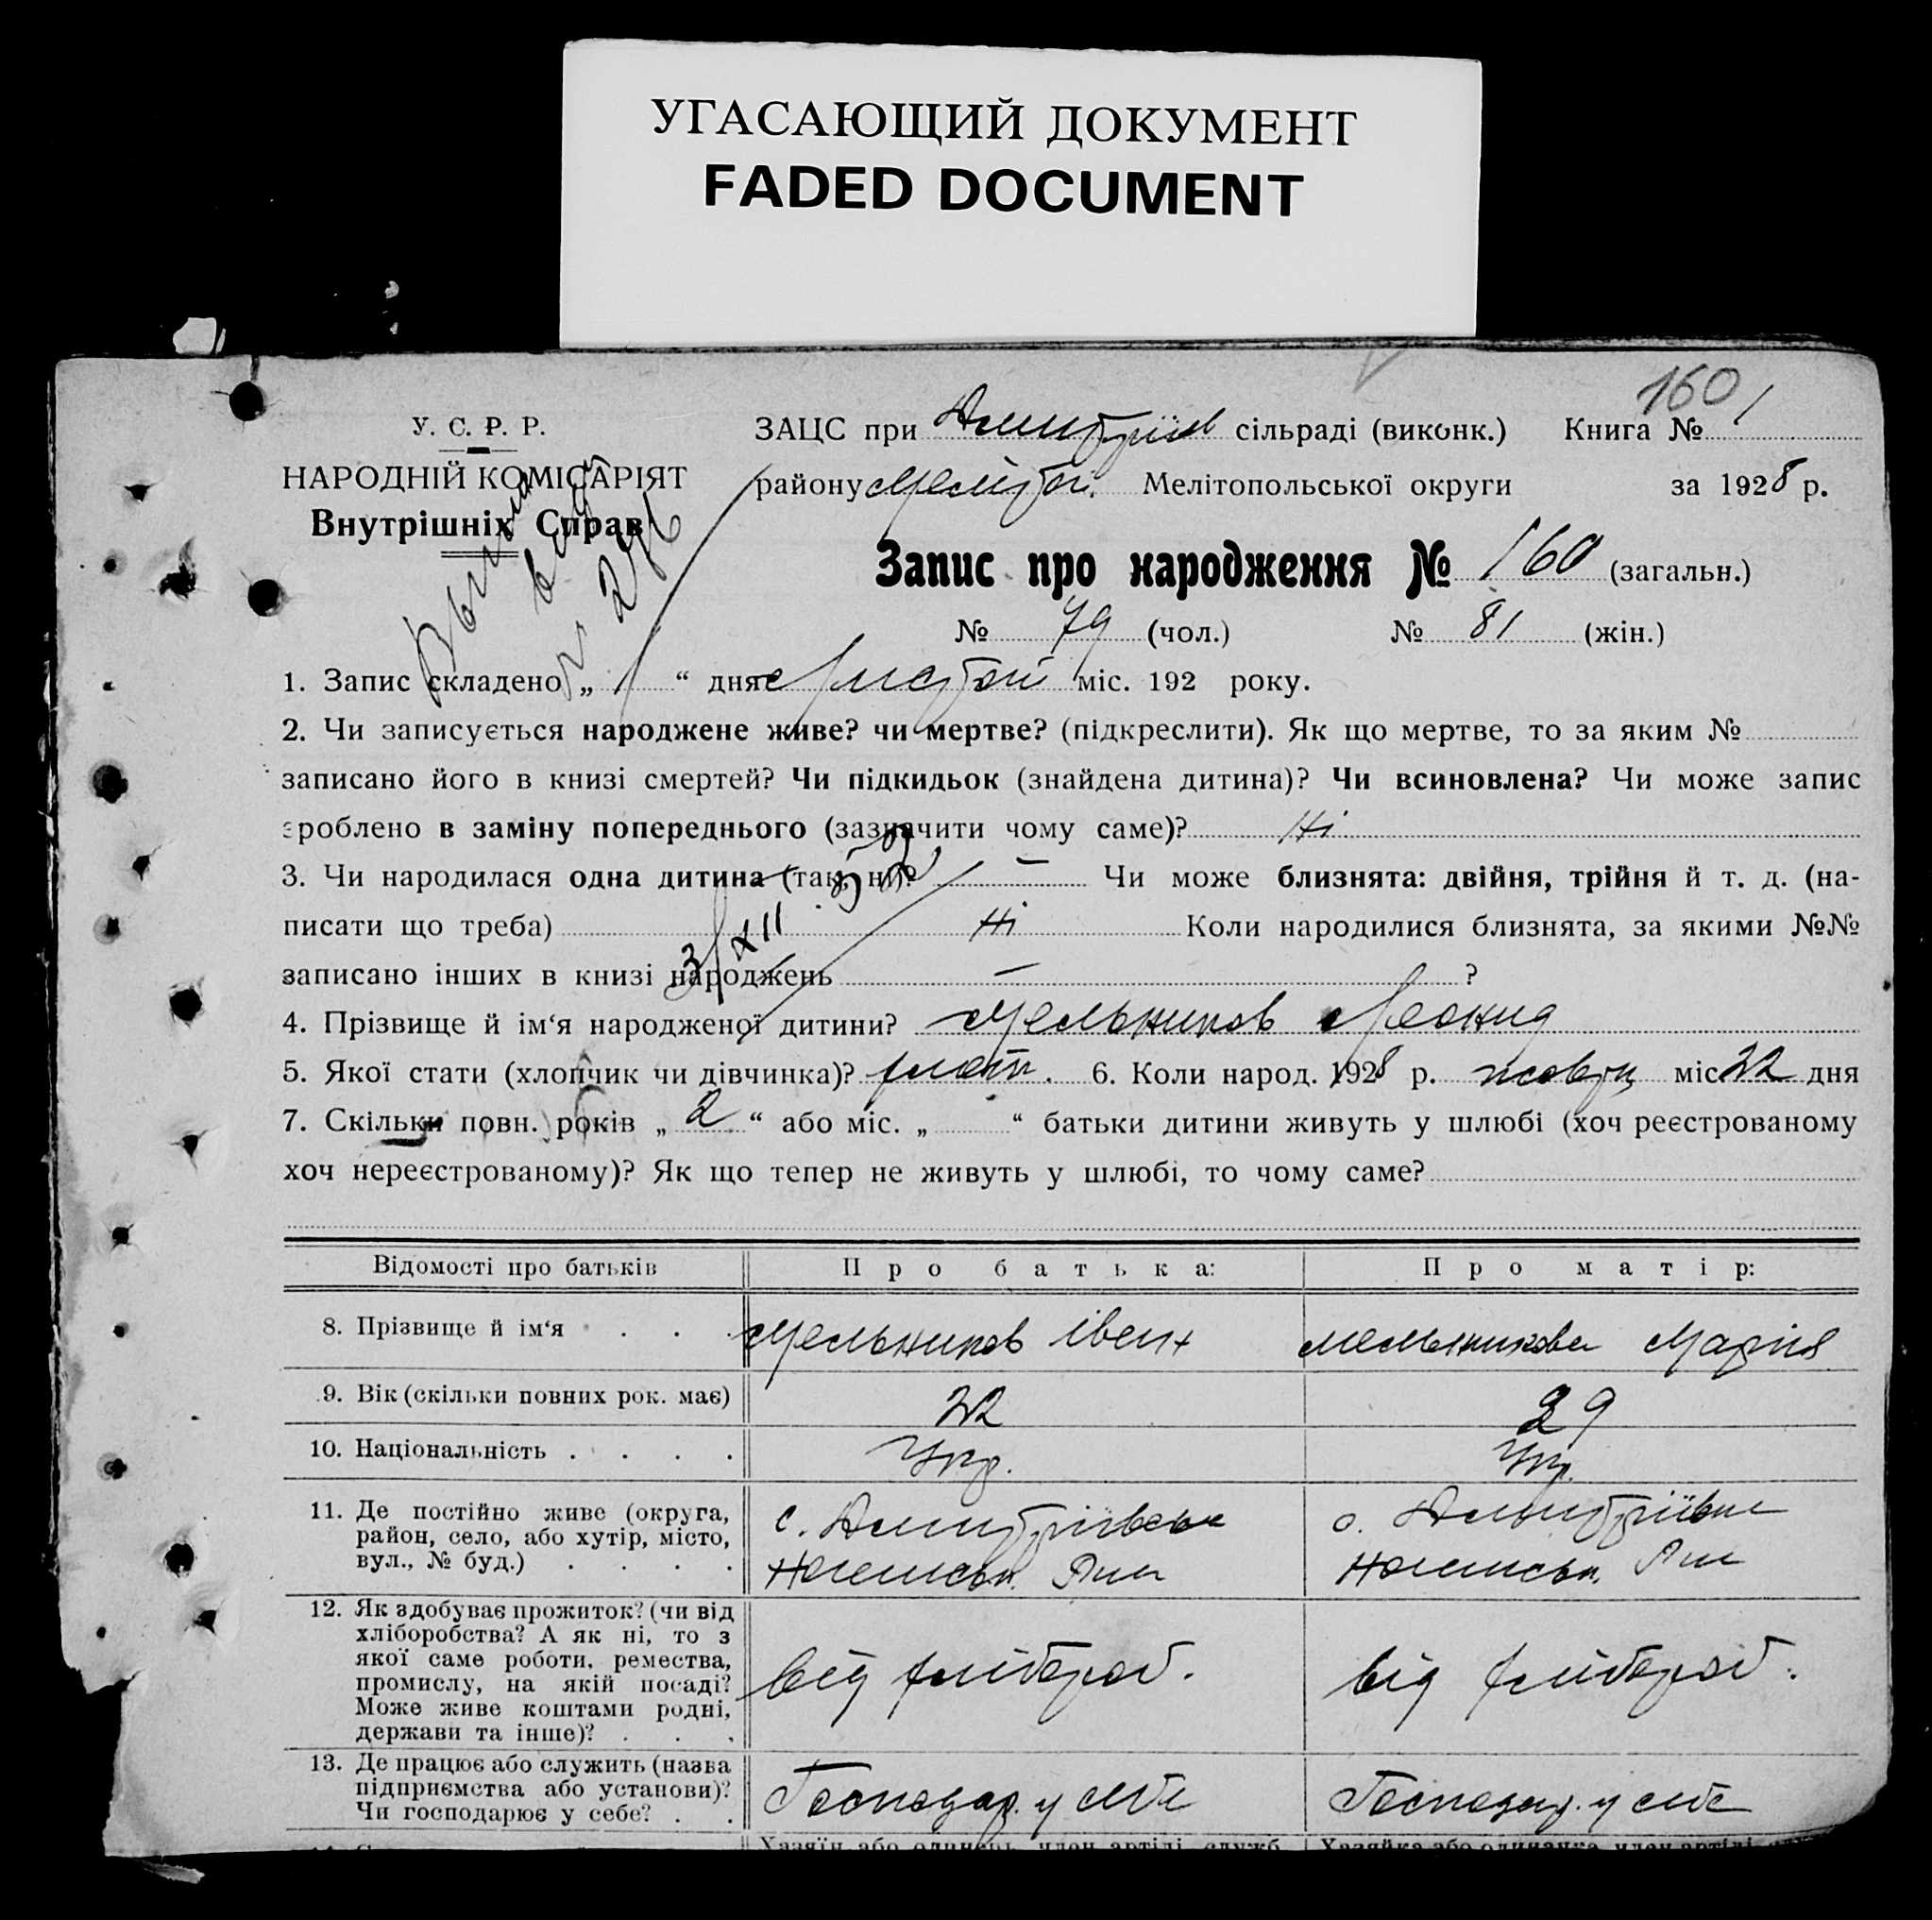 УГАСАЮЩИЙ ДОКУМЕНТ
FADED DOCUMENT
160
У. С. Р. Р.
НАРОДНІЙ КОМІСАРІЯТ
Внутрішніх Справ
ЗАЦС при Дмитріїв сільраді (виконк.) Книга № 1
району Мелітоп. Мелітопольської округи за 1928 р.
Запис про народження № 160 (загальн.)
№ 79 (чол.) № 81 (жін.)
1. Запис складено „ 1 “ дня Листоп міс. 192 року.
2. Чи записується народжене живе? чи мертве? (підкреслити). Як що мертве, то за яким №
записано його в книзі смертей? Чи підкидьок (знайдена дитина)? Чи всиновлена? Чи може запис
зроблено в заміну попереднього (зазначити чому саме)? Ні
3. Чи народилася одна дитина (так, ні)? — Чи може близнята: двійня, трійня й т. д. (на-
писати що треба) Ні Коли народилися близнята, за якими №№
записано інших в книзі народжень — ?
4. Прізвище й ім‘я народженої дитини? Мельников Леонид
5. Якої стати (хлопчик чи дівчинка)? хлоп. 6. Коли народ. 1928 р. жовтн міс. 22 дня
7. Скільки повн. років „ 2 “ або міс. „ “ батьки дитини живуть у шлюбі (хоч реєстрованому
хоч нереєстрованому)? Як що тепер не живуть у шлюбі, то чому саме?
Відомості про батьків Про батька: Про матір:
8. Прізвище й ім‘я Мельников Іван Мельникова Марія
9. Вік (скільки повних рок. має) 22 29
10. Національність Укр. Укр.
11. Де постійно живе (округа,
район, село, або хутір, місто,
вул., № буд.)
с. Дмитрівська
о. Дмитріївка
12. Як здобуває прожиток? (чи від
хліборобства? А як ні, то з
якої саме роботи, ремества,
промислу, на якій посаді?
Може живе коштами родні,
держави та інше)?
від хлібороб.
від хлібороб.
13. Де працює або служить (назва
підприємства або установи)?
Чи господарює у себе?
Господар. у себе
Господар. у себе